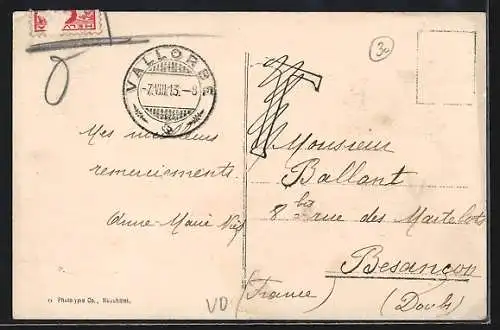 HELV
3c
VALLORBE
-7.VIII.13.-8
T
Mes
remerciements
Anne-Marie
Monsieur
Ballant
8 bis rue des Martelots
Besançon
(France) (Doubs)
Phototypie Co., Neuchâtel.
VD